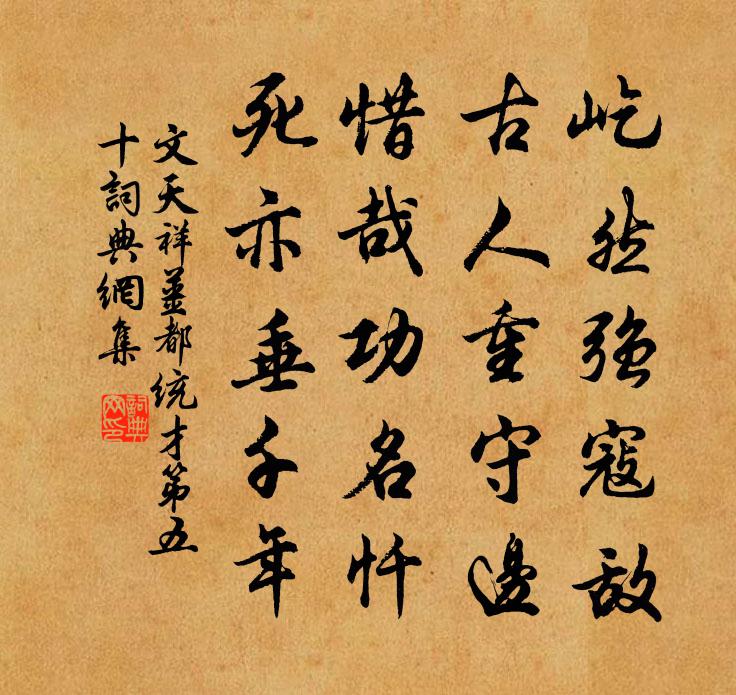 屹然強寇敵
古人重守邊
惜哉功名忤
死亦垂千年
文天祥薑都統才第五
十詞典網集
詞典
网印